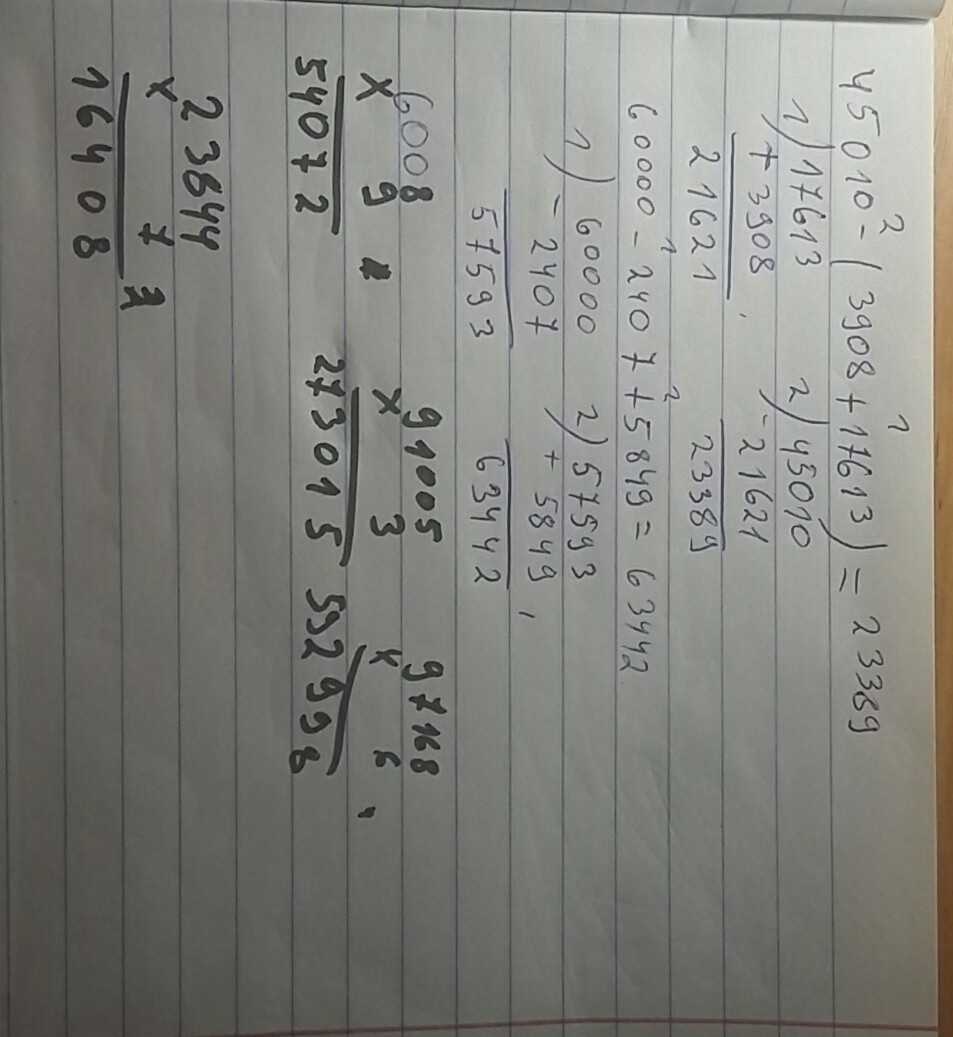 45010 - (3908 + 17613) = 23389
1) 17613 2) 45010
+ 3908 - 21621
21621 23389
60000 - 2407 + 5849 = 63442
1) 60000 2) 57593
- 2407 + 5849
57593 63442
6008 91005 97168
x 9 x 3 x 6
54072 273015
23844
x 7
16408